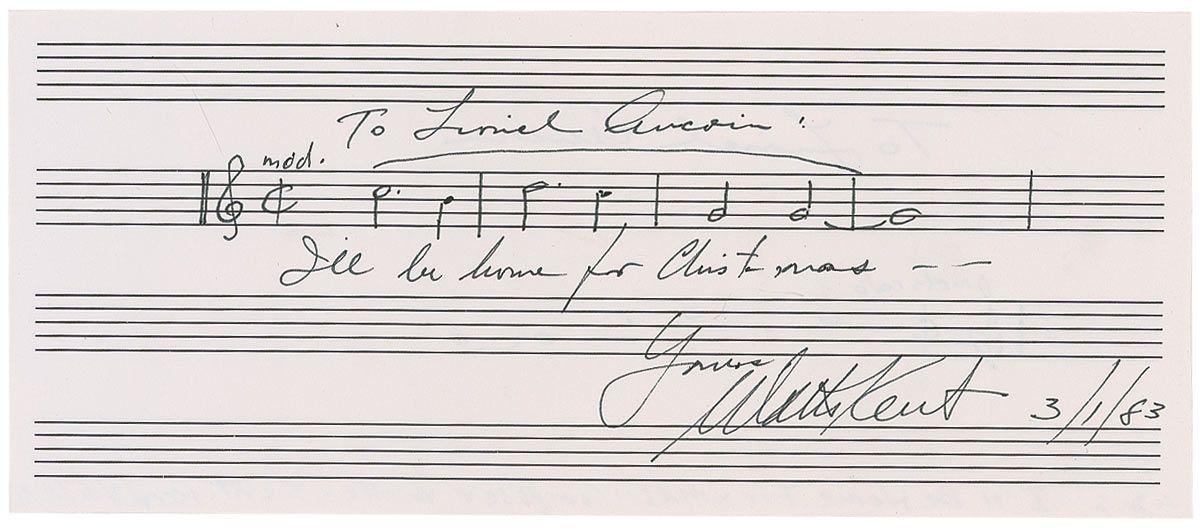 To Lionel Aucoin:
mod.
I'll be home for Christmas --
Yours
Walter Kent 3/1/83